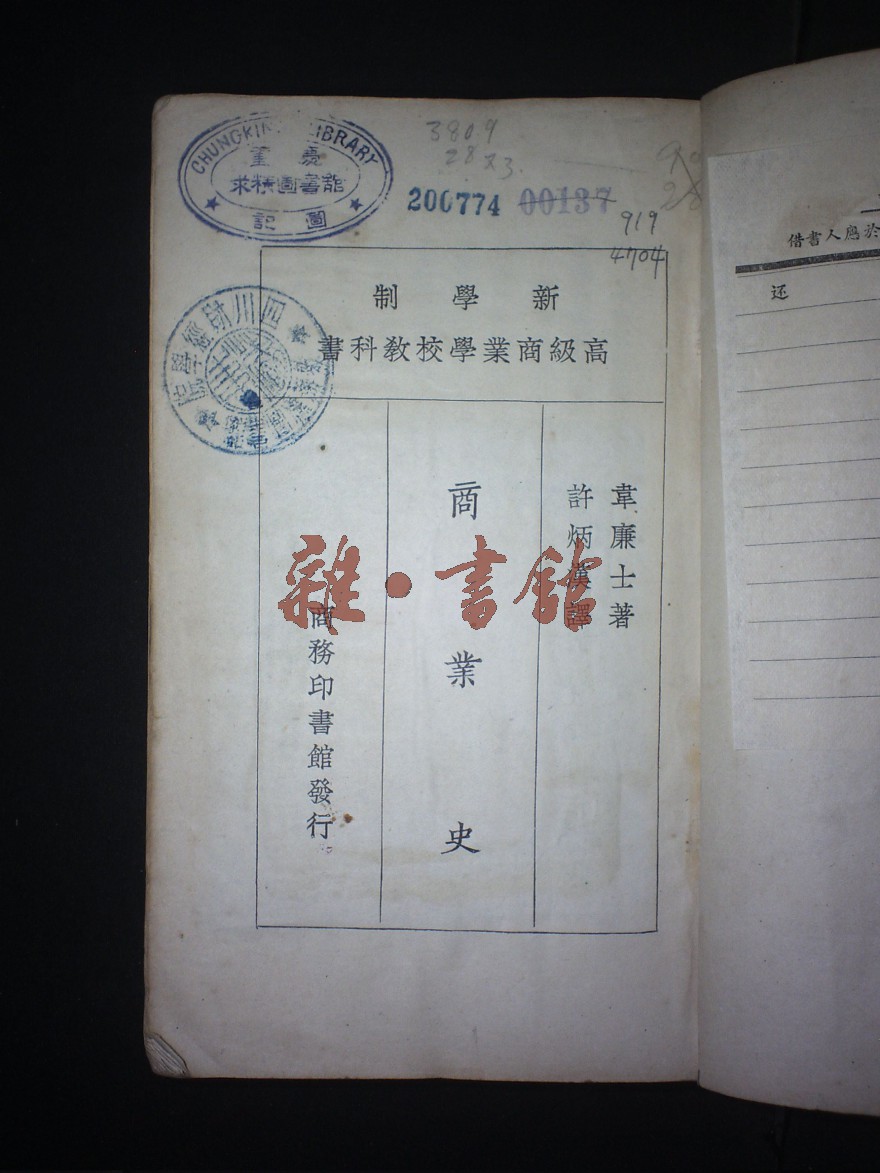 CHUNGKING LIBRARY
重慶
求精圖書館
圖記
3809
28 x3.
200774 00137
919
4704
新學制
高級商業學校教科書
四川財經學院
韋廉士著
許炳漢譯
商業史
商務印書館發行
雜·書館
借書人應於
还